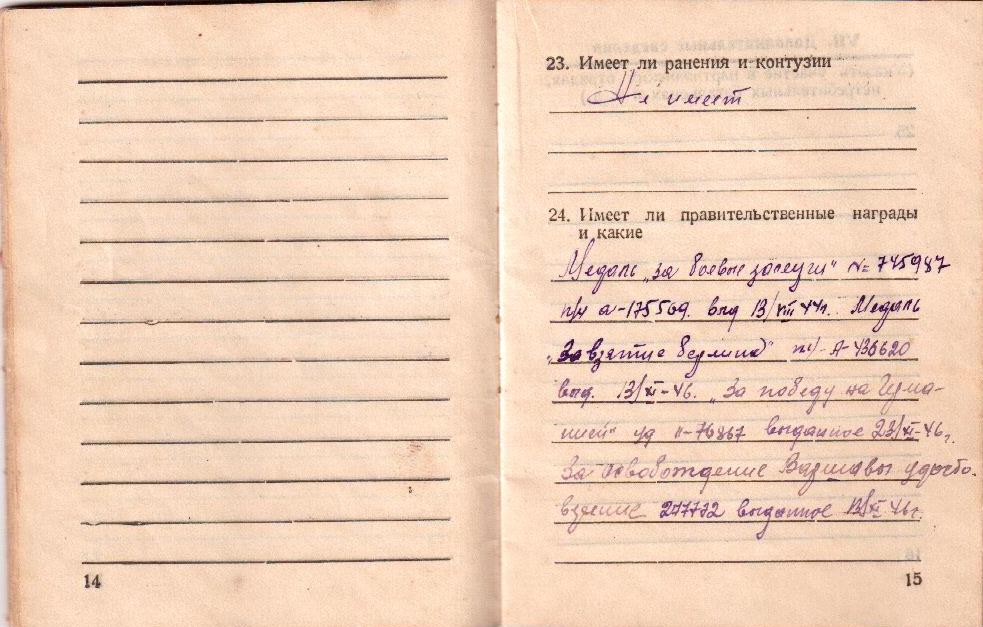 23. Имеет ли ранения и контузии
Не имеет
24. Имеет ли правительственные награды
и какие
Медаль „за боевые заслуги" № 745987
п/у а-175569. выд 13/VIII 44г. Медаль
„За взятие берлина" А-436620
выд. 13/XI-46. „За победу на Герма-
нией" уд 11-76867 выданное 23/XI-46г.
За освобождение Варшавы удосто.
верение 277732 выданное 13/XI 46г.
14
15